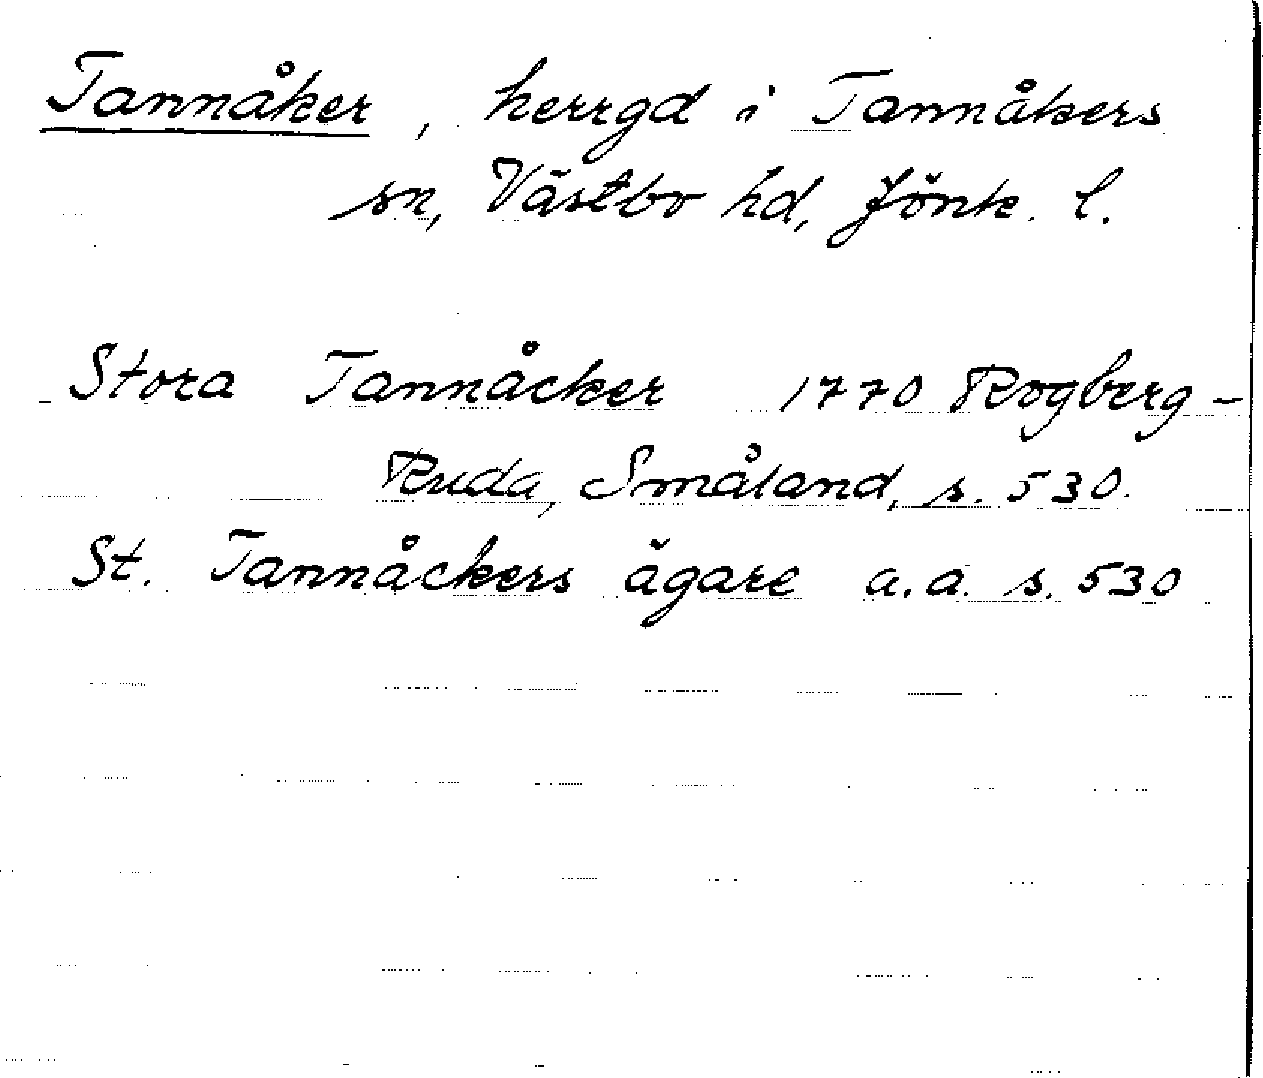 Tannåker, herrgd i Tannåkers
sn, Västbo hd, Jönk. l.
Stora Tannåcker 1770 Rogberg-
Ruda, Småland, s. 530.
St. Tannåckers ägare a.a. s. 530